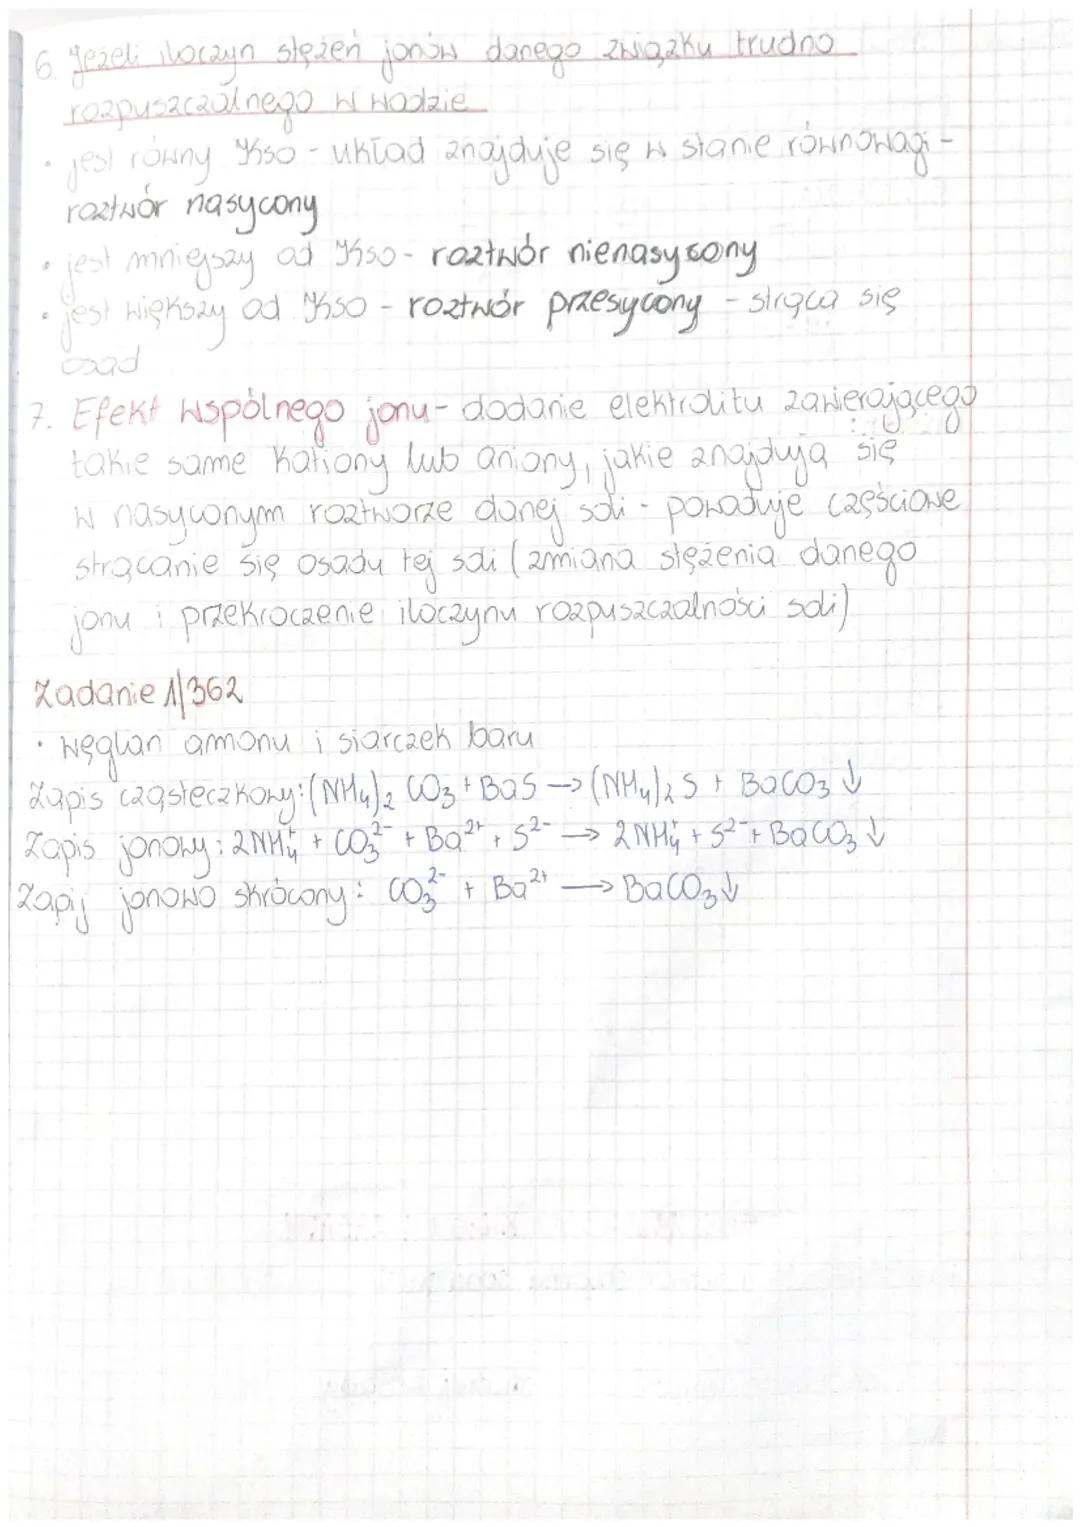 6. Jeżeli iloczyn stężeń jonów danego związku trudno
rozpuszczalnego w wodzie
• jest równy Kso - układ znajduje się w stanie równowagi -
roztwór nasycony
• jest mniejszy od Kso - roztwór nienasycony
• jest większy od Kso - roztwór przesycony - strąca się
osad
7. Efekt wspólnego jonu - dodanie elektrolitu zawierającego
takie same kationy lub aniony, jakie znajdują się
w nasyconym roztworze danej soli - powoduje częściowe
strącanie się osadu tej soli (zmiana stężenia danego
jonu i przekroczenie iloczynu rozpuszczalności soli)
Zadanie 1/362
• węglan amonu i siarczek baru
Zapis cząsteczkowy: (NH₄)₂CO₃ + BaS → (NH₄)₂S + BaCO₃ ↓
Zapis jonowy: 2NH₄⁺ + CO₃²⁻ + Ba²⁺ + S²⁻ → 2NH₄⁺ + S²⁻ + BaCO₃ ↓
Zapij jonowo skrócony: CO₃²⁻ + Ba²⁺ → BaCO₃↓